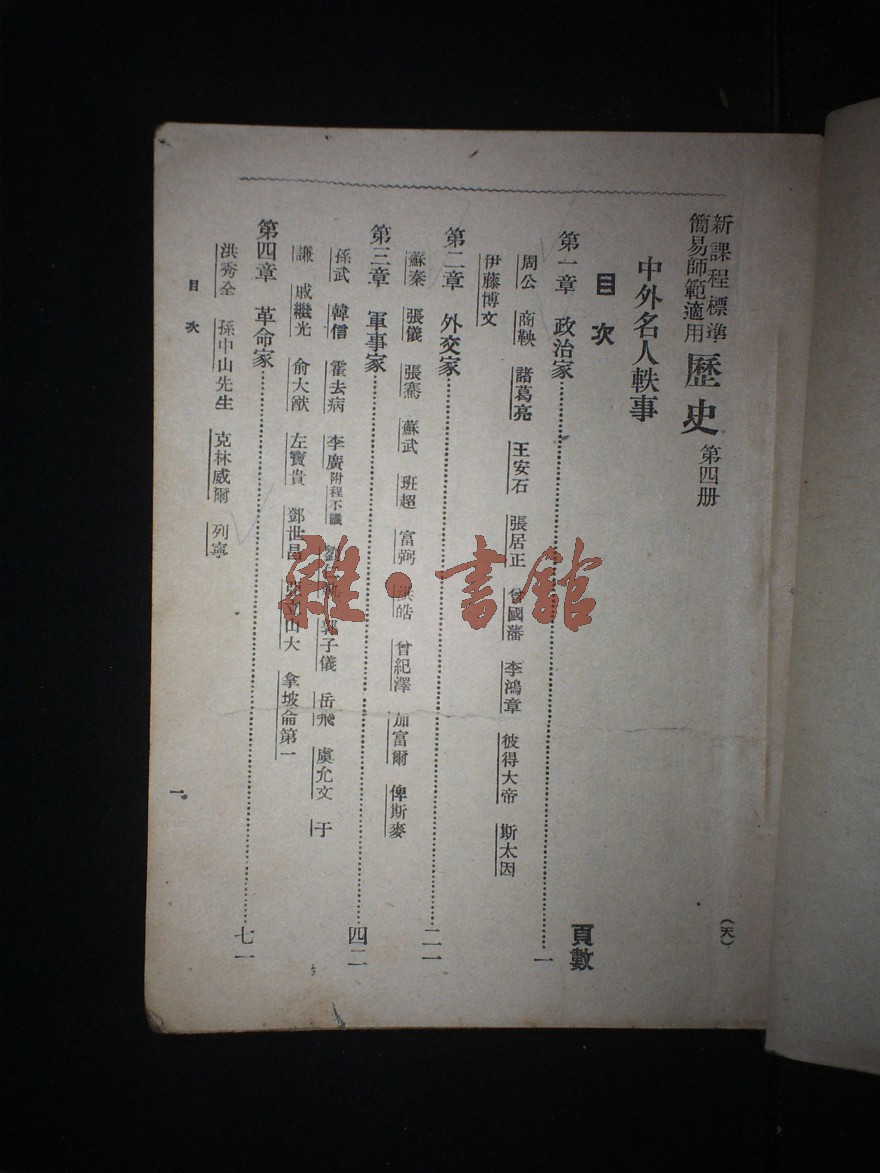 新課程標準
簡易師範適用
歷史
第四册
（天）
中外名人軼事
目次
頁數
第一章 政治家 一
周公 商鞅 諸葛亮 王安石 張居正 曾國藩 李鴻章 彼得大帝 斯太因
伊藤博文
第二章 外交家 二一
蘇秦 張儀 張騫 蘇武 班超 富弼 洪皓 曾紀澤 加富爾 俾斯麥
第三章 軍事家 四二
孫武 韓信 霍去病 李廣附程不識 郭子儀 岳飛 虞允文 于
謙 戚繼光 俞大猷 左寶貴 鄧世昌 山大 拿坡侖第一
第四章 革命家 七一
洪秀全 孫中山先生 克林威爾 列寧
目次
一
雜·書館